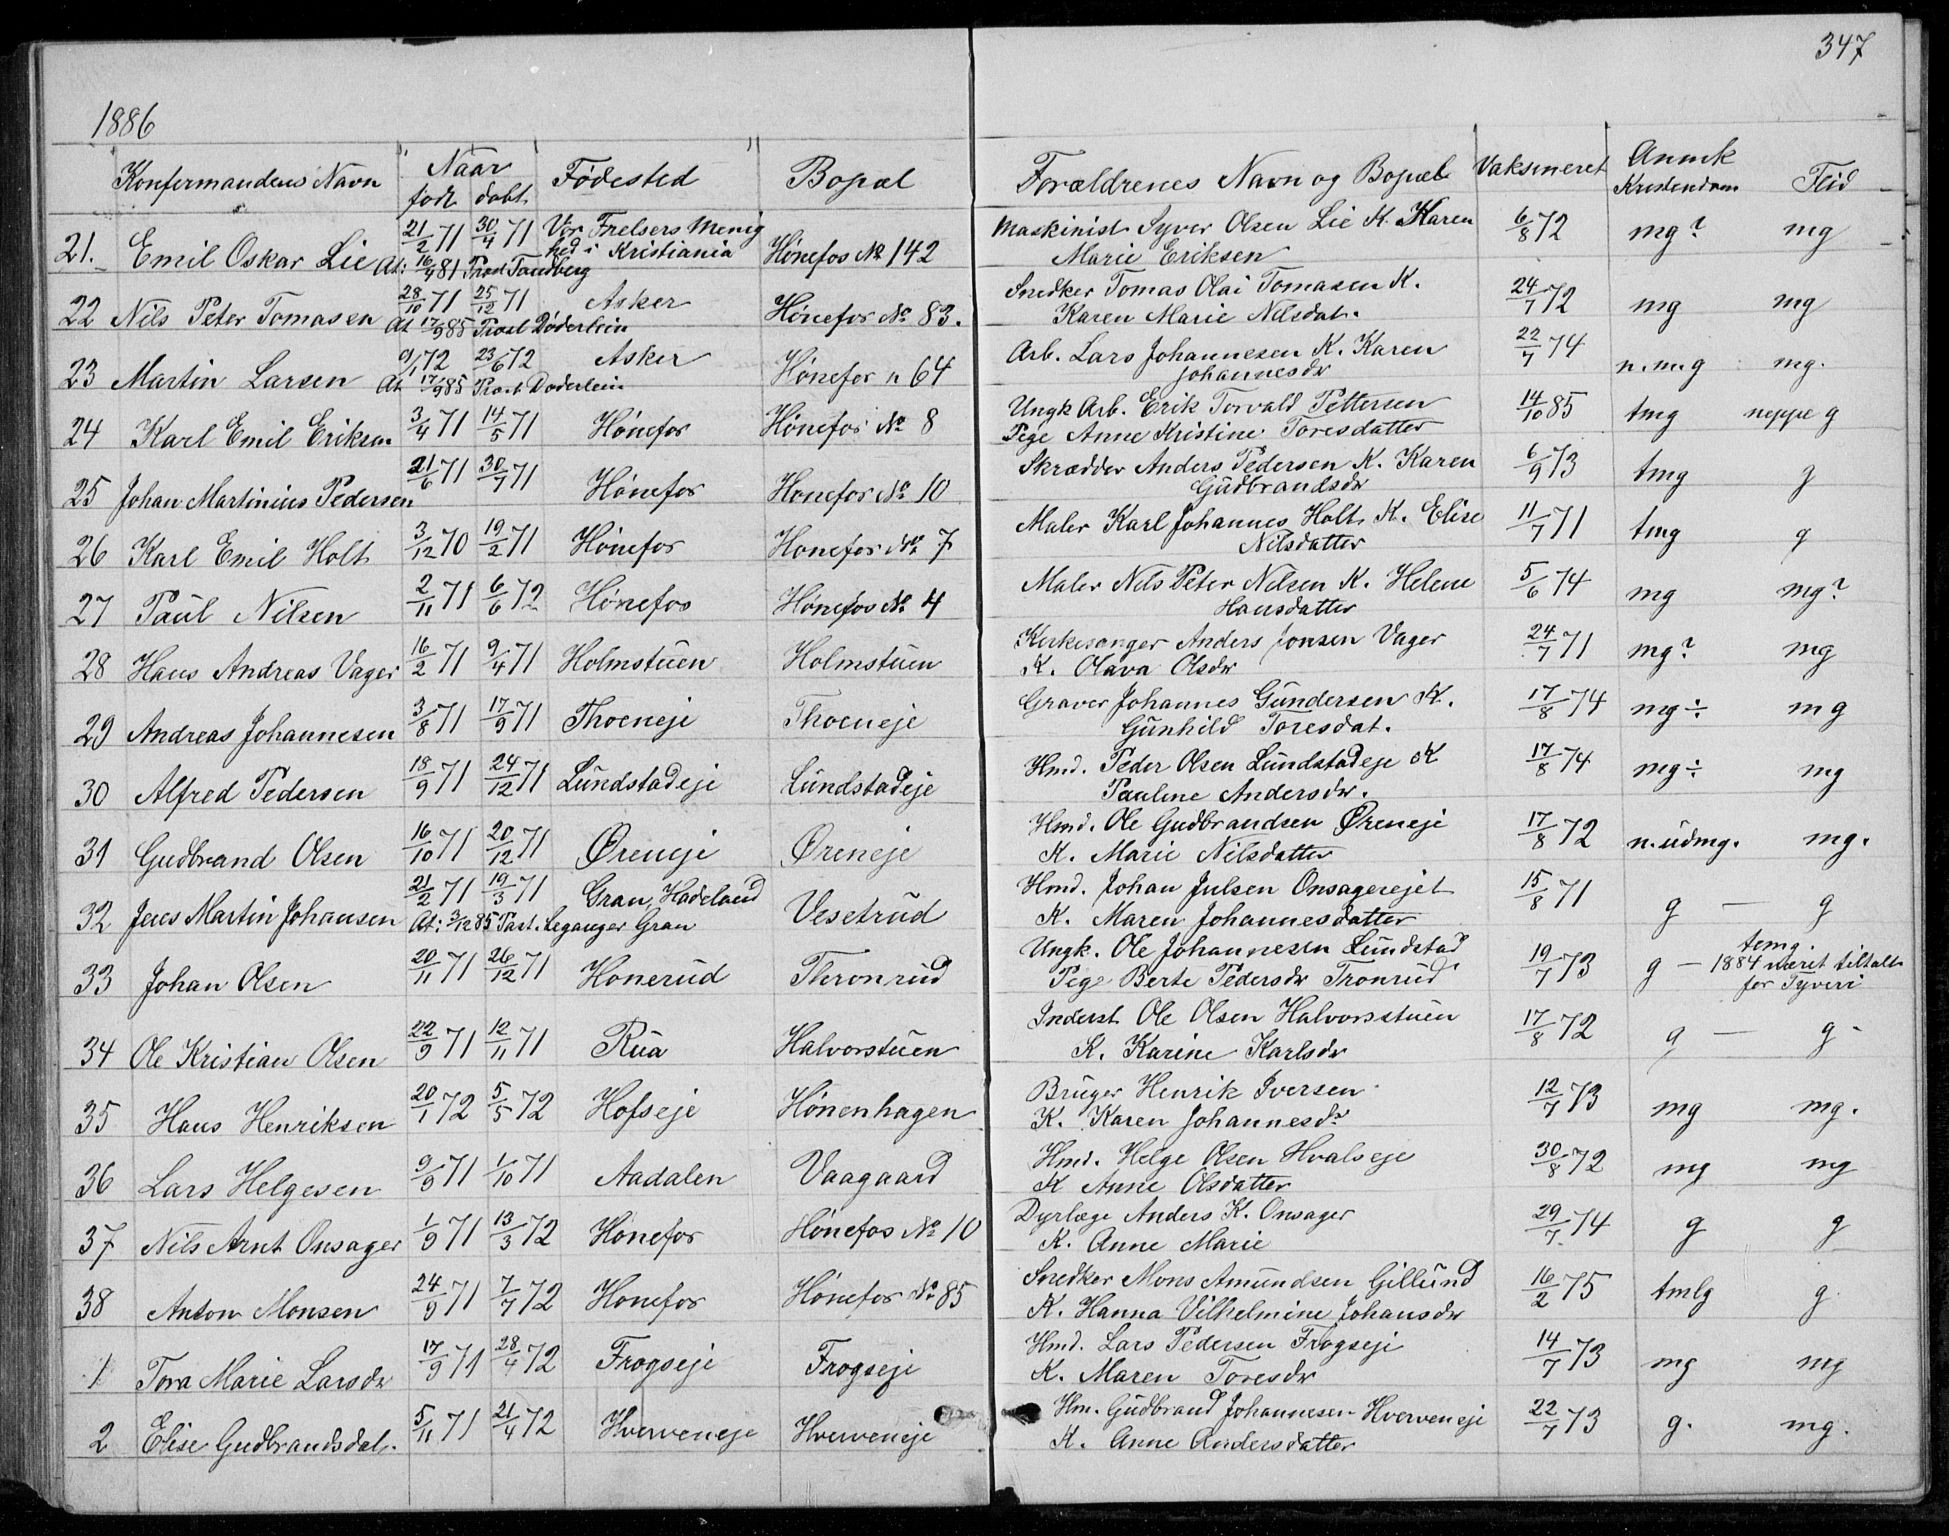 347
1886
Konfermandens Navn Naar født døbt Fødested Bopæl Forældrenes Navn og Bopæl Vaksineret Anmk Kristendom Flid
21. Emil Oskar Lie 21/2 71 30/4 71 Vor Frelsers Menighed i Kristiania Hønefos No 142 Maskinist Syver Olsen Lie K. Karen Marie Eriksen 6/8 72 mg? mg
At: 16/4 81 Prost Tandberg
22 Nils Peter Tomasen 28/10 71 25/12 71 Asker Hønefos No 83. Snedker Tomas Olai Tomasen K. Karen Marie Nilsdat. 24/7 72 mg mg
At 17/9 85 Prost Døderlein
23 Martin Larsen 9/1 72 23/6 72 Asker Hønefos " 64 Arb. Lars Johannesen K. Karen Johannesdr 22/7 74 n.m.g mg.
At 17/9 85 Prost Døderlein
24 Karl Emil Eriksen 3/4 71 14/5 71 Hønefos Hønefos No 8 Ungk Arb. Erik Torvald Pettersen Pige Anne Kristine Toresdatter 14/10 85 tmg neppe g
25 Johan Martinius Pedersen 21/6 71 30/7 71 Hønefos Hønefos No 10 Skrædder Anders Pedersen K. Karen Gudbrandsdr 6/9 73 tmg g
26 Karl Emil Holt 3/12 70 19/2 71 Hønefos Hønefos No 7 Maler Karl Johannes Holt K. Elise Nilsdatter 11/7 71 tmg g
27 Paul Nilsen 2/11 71 6/6 72 Hønefos Hønefos No 4 Maler Nils Peter Nilsen K. Helene Hansdatter 5/6 74 mg mg?
28 Hans Andreas Vager 16/2 71 9/4 71 Holmstuen Holmstuen Kirkesanger Anders Jonsen Vager K. Olava Olsdr 24/7 71 mg? mg
29 Andreas Johannesen 3/8 71 17/9 71 Thoeneje Thoeneje Graver Johannes Gundersen K. Gunhild Toresdat. 17/8 74 mg ÷ mg
30 Alfred Pedersen 18/9 71 24/12 71 Lundstadeje Lundstadeje Hmd. Peder Olsen Lundstadeje K Pauline Andersdr. 17/8 74 mg ÷ mg
31 Gudbrand Olsen 16/10 71 20/12 71 Øreneje Øreneje Hmd. Ole Gudbrandsen Øreneje K. Marie Nilsdatter 17/8 72 n.udmg. mg.
32 Jens Martin Johansen 21/2 71 19/3 71 Gran, Hadeland Vesetrud Hmd. Johan Julsen Onsagerejet K. Maren Johannesdatter 15/8 71 g — g
At: 3/12 85 Past. Leganger Gran
33 Johan Olsen 20/11 71 26/12 71 Honerud Thronrud Ungk. Ole Johannesen Lundstad Pige Berte Pedersdr Tronrud 19/7 73 g — temg. 1884 været tiltalt for Tyveri
34 Ole Kristian Olsen 22/9 71 12/11 71 Rua Halvorstuen Inderst Ole Olsen Halvorsstuen K. Karine Karlsdr 17/8 72 g — g
35 Hans Henriksen 20/1 72 5/5 72 Hofseje Hønenhagen Bruger Henrik Iversen K. Karen Johannesdr 12/7 73 mg mg.
36 Lars Helgesen 9/9 71 1/10 71 Aadalen Vaagaard Hmd. Helge Olsen Hvalseje K Anne Olsdatter 30/8 72 mg mg
37 Nils Arnt Onsager 1/9 71 13/3 72 Hønefos Hønefos No 10 Dyrlæge Anders K. Onsager K. Anne Marie 29/7 74 g g
38 Anton Monsen 24/9 71 7/7 72 Hønefos Hønefos No 85 Snedker Mons Amundsen Gillund K. Hanna Vilhelmine Johansdr 16/2 75 tmlg g
1 Tora Marie Larsdr 17/9 71 28/4 72 Frogseje Frogseje Hmd. Lars Pedersen Frogseje K. Maren Toresdr 14/7 73 mg mg
2 Elise Gudbrandsdat. 5/11 71 21/4 72 Hverveneje Hverveneje Hm. Gudbrand Johannesen Hverveneje K. Anne Andersdatter 22/7 73 g. mg.